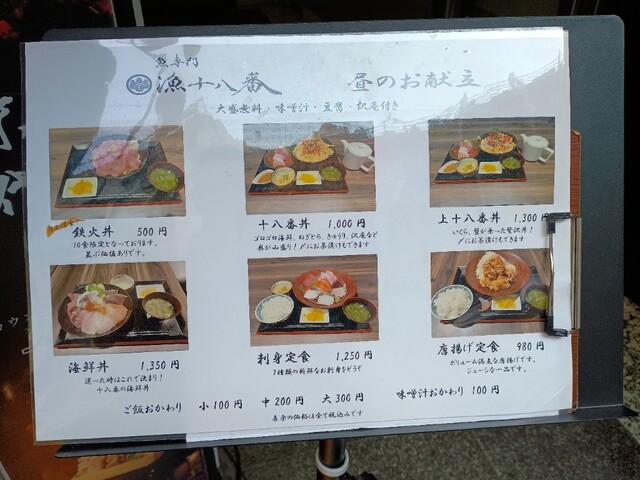 魚専門
漁十八番
昼のお献立
大盛無料・味噌汁・豆腐・沢庵付き
鉄火丼 500円
10食限定となっております。
並ぶ価値ありです。
十八番丼 1,000円
ゴロゴロ海鮮、ねぎとろ、きゅうり、沢庵など
具が山盛り！〆にお茶漬けもできます
上十八番丼 1,300円
いくら、蟹が乗った贅沢丼！
〆にお茶漬けもできます
海鮮丼 1,350円
迷った時はこれで決まり！
十八番の海鮮丼
刺身定食 1,250円
7種類の新鮮なお刺身をどうぞ
唐揚げ定食 980円
ボリューム満点な唐揚げです。
ジューシな一品です。
ご飯おかわり 小100円 中200円 大300円
味噌汁おかわり 100円
表示の価格は全て税込みです